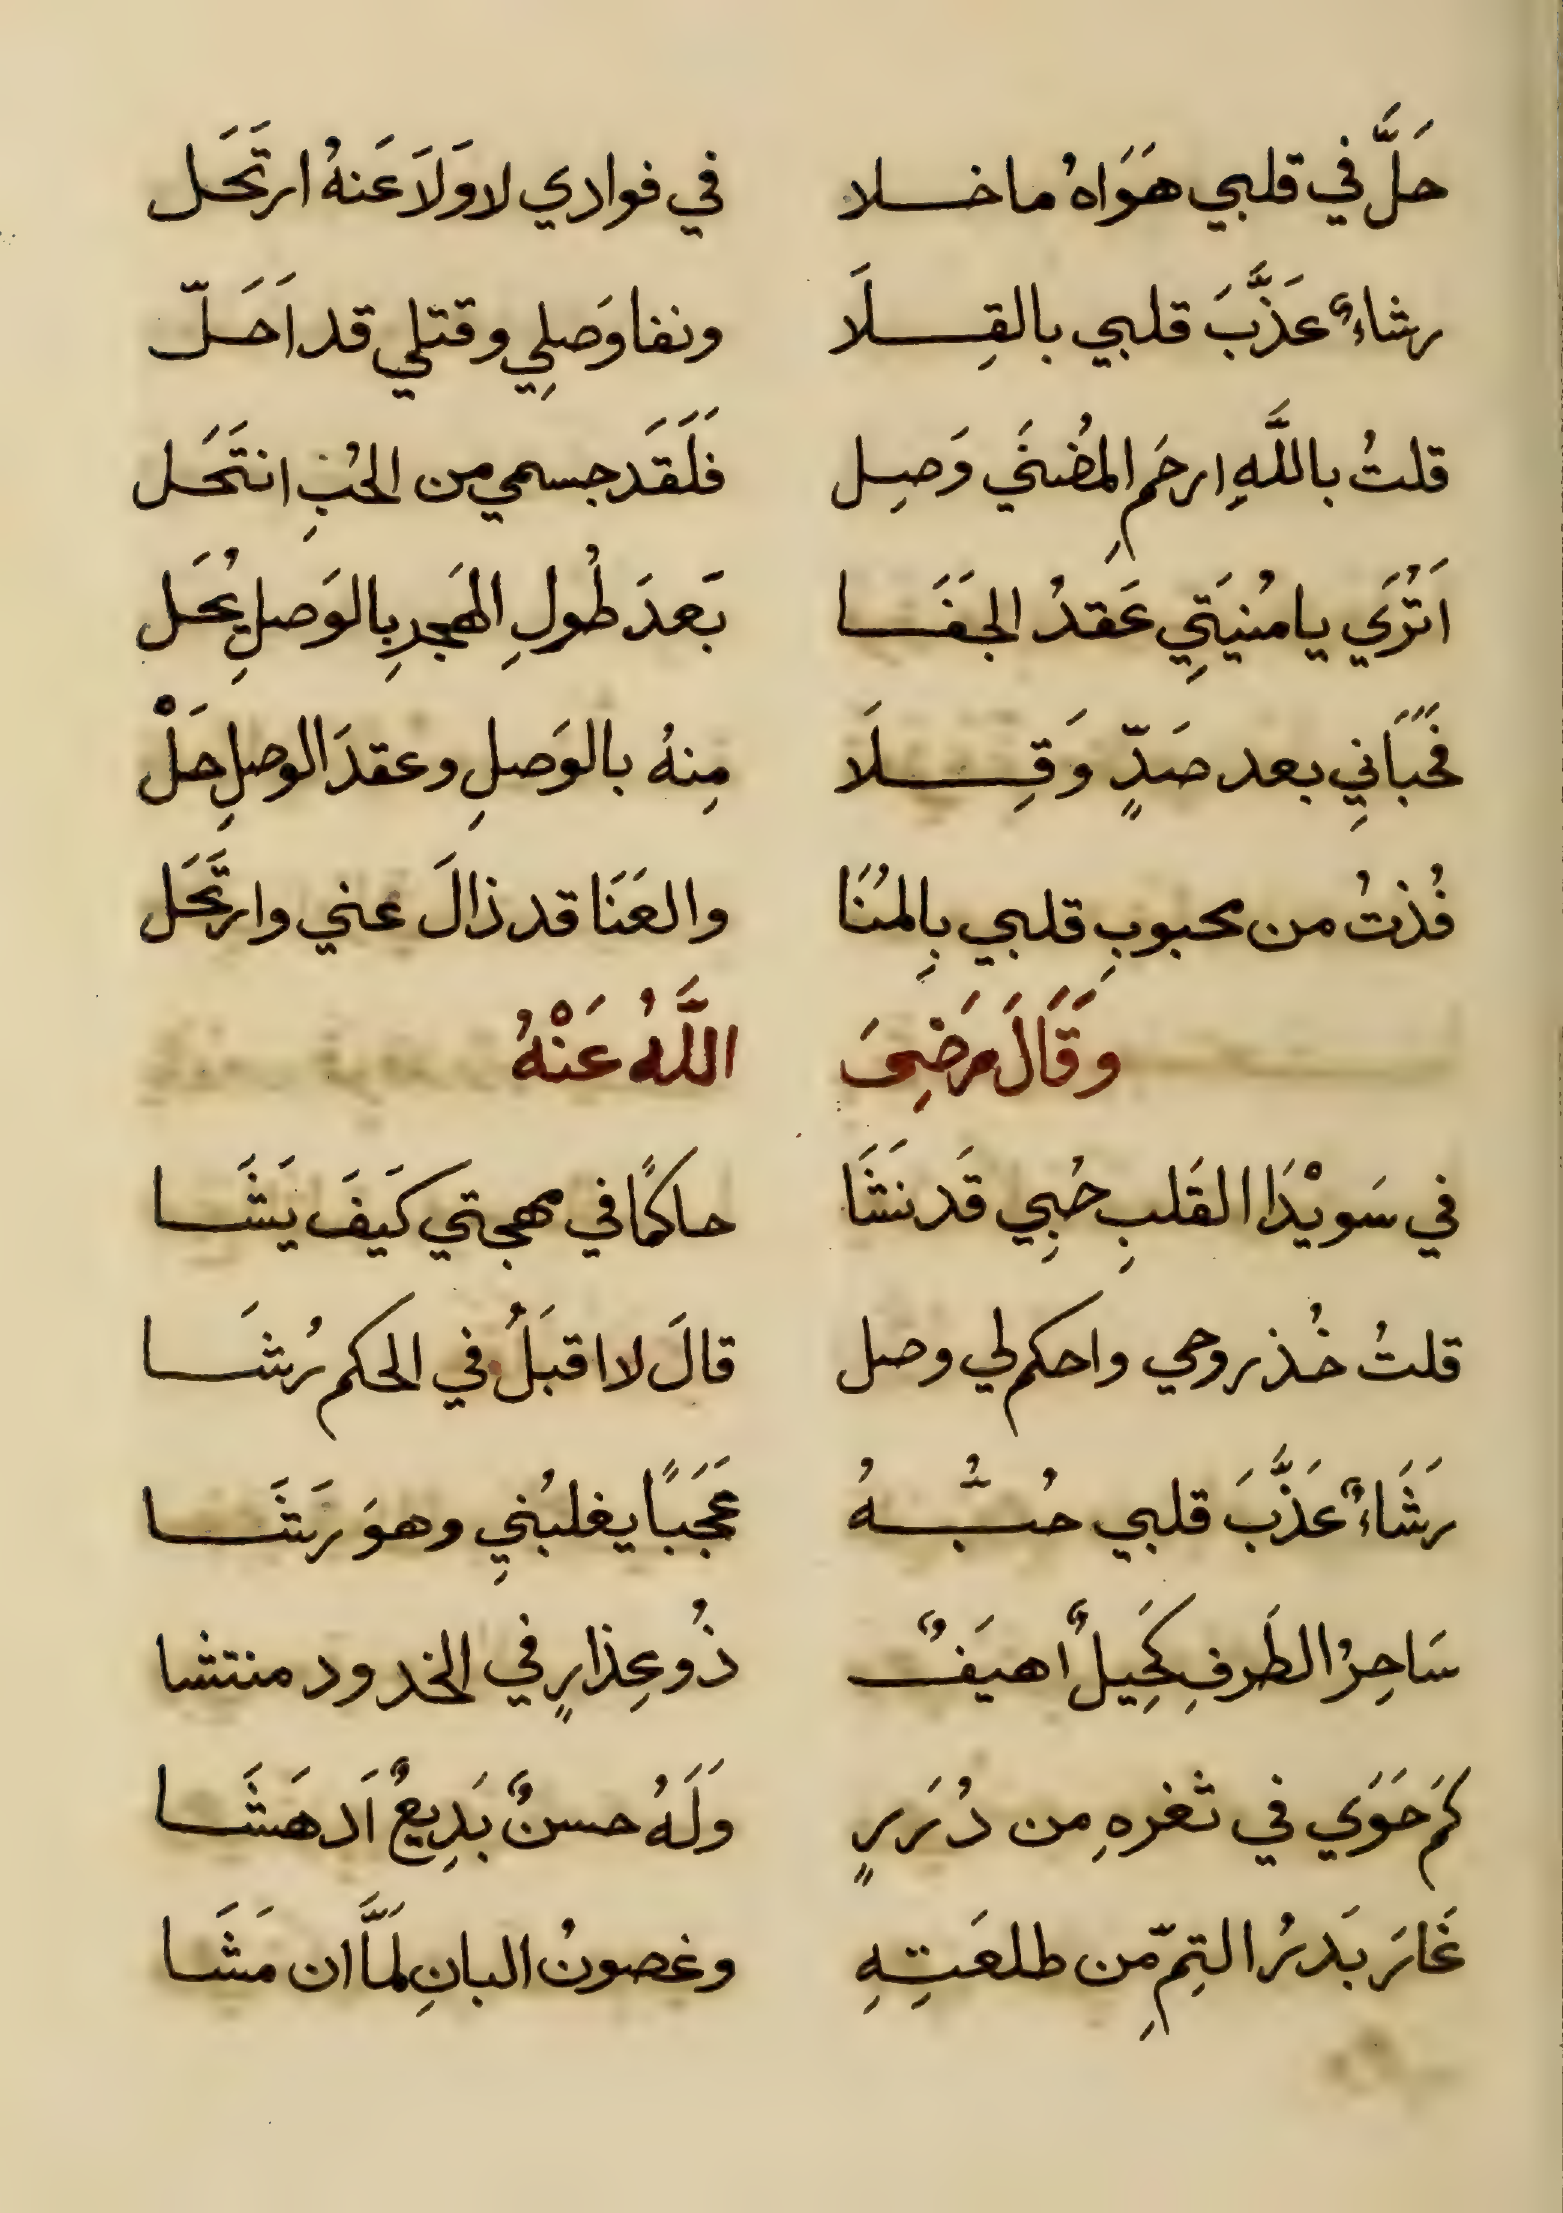 حَلَّ في قلبي هَوَاهُ ما خلا في فوادي لا وَلَا عَنهُ ارتَحَل
رشاءٌ عَذَّبَ قلبي بالقِلَا ونفا وَصلِي وقتلي قد اَحَلّ
قلتُ باللَّهِ ارحَمِ المُضنَي وَصِل فَلَقَد جسمي من الحُبِ انتَحَل
اَتُرَي يا مُنيَتِي عَقدُ الجَفَا بَعدَ طُولِ الهَجرِ بِالوَصلِ يُحَل
فَحَبَانِي بعد صَدٍّ وَقِلَا مِنهُ بالوَصلِ وعقدَ الوصلِ حَلْ
فُذتُ من محبوبِ قلبي بِالمُنَا والعَنَا قد زالَ عني وارتَحَل
وَقَالَ رَضِىَ اللَّهُ عَنْهُ
في سَويْدَا القَلبِ حُبِي قَد نَشَا حاكمًا في مهجتي كَيَفَ يَشَا
قلتُ خُذ روحي واحكم لي وصل قالَ لا اقبَلُ في الحكم رُشَا
رَشَاءٌ عَذَّبَ قلبي حُبُّهُ عَجَبًا يغلبُنِي وهوَ رَشَا
سَاحِرُ الطَرفِ كَحِيلٌ اهيَفٌ ذُو عِذارٍ في الخدود منتشا
كَم حَوَي في ثغرهِ مِن دُرَرٍ وَلَهُ حسنٌ بَدِيعٌ اَدهَشَا
غَارَ بَدرُ التِمِّ من طلعَتِهِ وغصونُ البانِ لَمَّا ان مَشَا